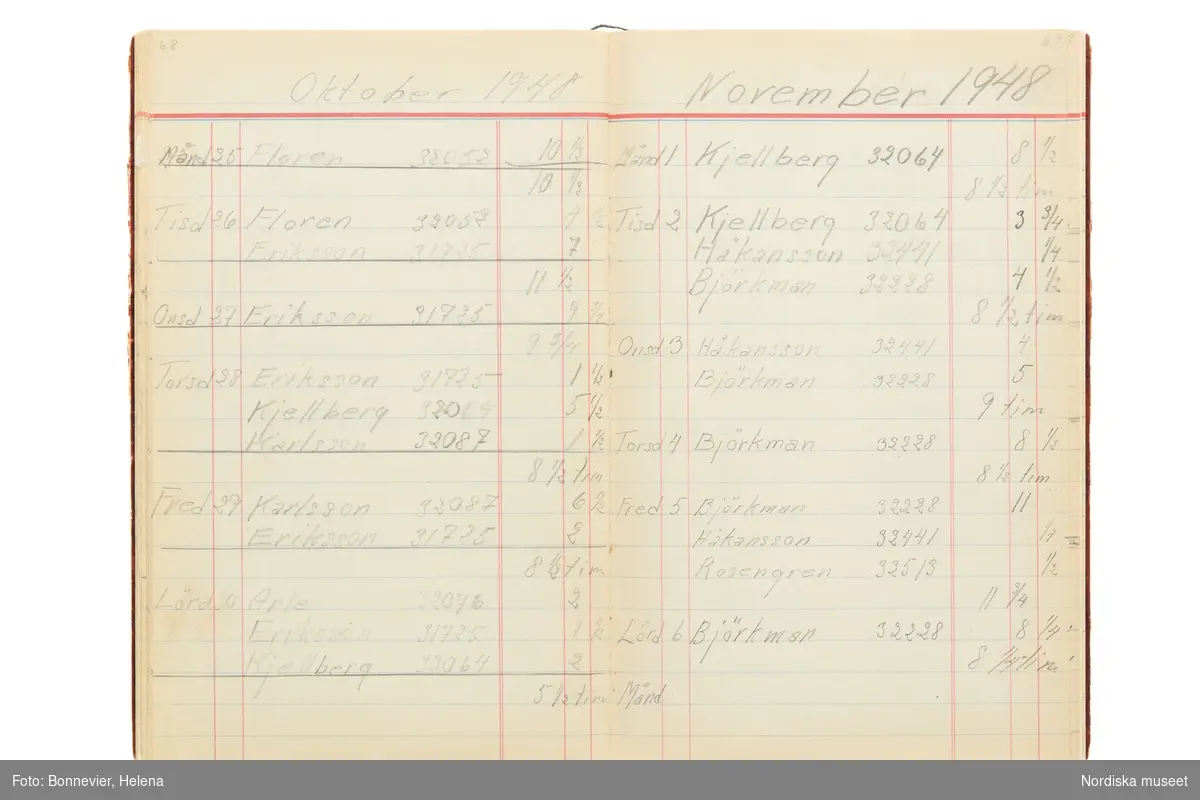 68
Oktober 1948
Månd 25 Floren 32052 10 1/2
10 1/2
Tisd 26 Floren 32052 4 1/2
Eriksson 31725 7
11 1/2
Onsd 27 Eriksson 31725 9 3/4
9 3/4
Torsd 28 Eriksson 31725 1 1/2
Kjellberg 32064 5 1/2
Karlsson 32087 1 1/2
8 1/2 tim
Fred 29 Karlsson 32087 6 1/2
Eriksson 31725 2
8 1/2 tim
Lörd 30 Arle 32096 2
Eriksson 31725 1 1/2
Kjellberg 32064 2
5 1/2 tim
November 1948
Månd 1 Kjellberg 32064 8 1/2
8 1/2 tim
Tisd 2 Kjellberg 32064 3 3/4
Håkansson 32441 1/4
Björkman 32228 4 1/2
8 1/2 tim
Onsd 3 Håkansson 32441 4
Björkman 32228 5
9 tim
Torsd 4 Björkman 32228 8 1/2
8 1/2 tim
Fred 5 Björkman 32228 11
Håkansson 32441 1/4
Rosengren 32513 1/2
11 3/4
Lörd 6 Björkman 32228 8 1/4
8 1/4 tim
Månd
Foto: Bonnevier, Helena
Nordiska museet